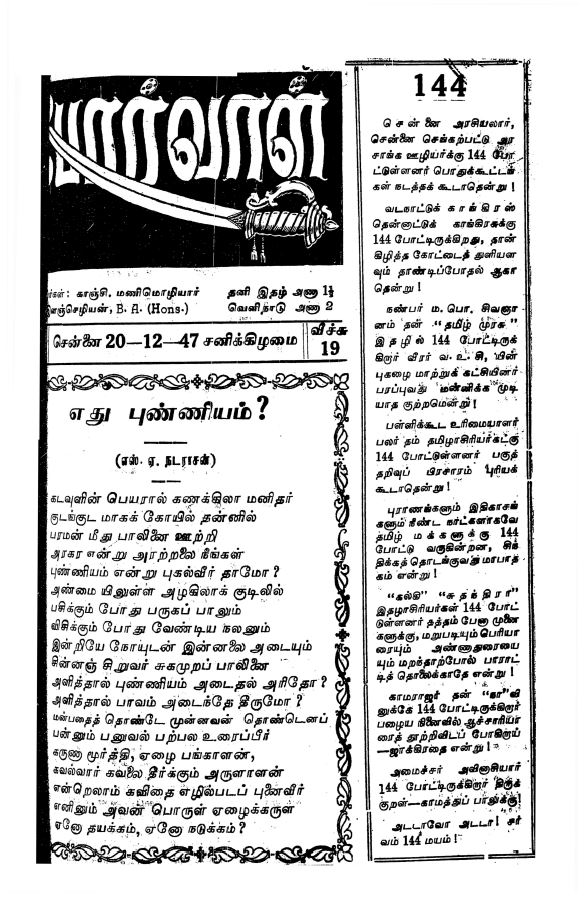 போர்வாள்
காஞ்சி. மணிமொழியார்
தனி இதழ் அணா 1½
இளஞ்செழியன், B. A. (Hons.)
வெளிநாடு அணா 2
சென்னை 20—12—47 சனிக்கிழமை
வீச்சு
19
எது புண்ணியம்?
(எஸ். ஏ. நடராசன்)
கடவுளின் பெயரால் கணக்கிலா மனிதர்
குடங்குட மாகக் கோயில் தன்னில்
பரமன் மீது பாலினை ஊற்றி
அரகர என்று அரற்றலை நீங்கள்
புண்ணியம் என்று புகல்வீர் தாமோ?
அண்மை யினுள்ள அழகிலாக் குடிலில்
பசிக்கும் போது பருகப் பாலும்
விசிக்கும் போது வேண்டிய நலனும்
இன்றியே நோயுடன் இன்னலை அடையும்
சின்னஞ் சிறுவர் சுகமுறப் பாலினை
அளித்தால் புண்ணியம் அடைதல் அரிதோ?
அளித்தால் பாவம் அடைந்தே தீருமோ?
மன்பதைத் தொண்டே முன்னவன் தொண்டெனப்
பன்னும் பனுவல் பற்பல உரைப்பீர்
கருணா மூர்த்தி, ஏழை பங்காளன்,
கவல்வார் கவலை தீர்க்கும் அருளாளன்
என்றெலாம் கவிதை எழில்படப் புனைவீர்
எனினும் அவன் பொருள் ஏழைக்கருள
ஏனோ தயக்கம், ஏனோ நடுக்கம்?
144
சென்னை அரசியலார்,
சென்னை செங்கற்பட்டு அர
சாங்க ஊழியர்க்கு 144 போ
ட்டுள்ளனர் பொதுக்கூட்டங்
கள் நடத்தக் கூடாதென்று!
வடநாட்டுக் காங்கிரஸ்
தென்னாட்டுக் காங்கிரசுக்கு
144 போட்டிருக்கிறது, தான்
கிழித்த கோட்டைத் துளியள
வும் தாண்டிப்போதல் ஆகா
தென்று!
நண்பர் ம. பொ. சிவஞா
னம் தன் "தமிழ் முரசு"
இதழில் 144 போட்டிருக்
கிறார் வீரர் வ. உ. சி, யின்
புகழை மாற்றுக் கட்சியினர்
பரப்புவது மன்னிக்க முடி
யாத குற்றமென்று!
பள்ளிக்கூட உரிமையாளர்
பலர் தம் தமிழாசிரியர்கட்கு
144 போட்டுள்ளனர் பகுத்
தறிவுப் பிரசாரம் புரியக்
கூடாதென்று!
புராணங்களும் இதிகாசங்
களும் நீண்ட நாட்களாகவே
தமிழ் மக்களுக்கு 144
போட்டு வருகின்றன, சிந்
திக்கத் தொடங்குவது மாபாத
கம் என்று!
"கல்கி" "சுதந்திரா"
இதழாசிரியர்கள் 144 போட்
டுள்ளனர் தத்தம் பேனா முனை
களுக்கு, மறுபடியும் பெரியா
ரையும் அண்ணாதுரையை
யும் மறந்தாற்போல் பாராட்
டித் தொலைக்காதே என்று!
காமராஜர் தன் "கா"வி
னுக்கே 144 போட்டிருக்கிறார்
பழைய நினைவில் ஆச்சாரியா
ரைத் தூற்றிவிடப் போகிறாய்
—ஜாக்கிரதை என்று!
அமைச்சர் அவினாசியார்
144 போட்டிருக்கிறார் திருக்
குறள்—காமத்துப் பாலுக்கு!
அடடாவோ அடடா! சர்
வம் 144 மயம்!